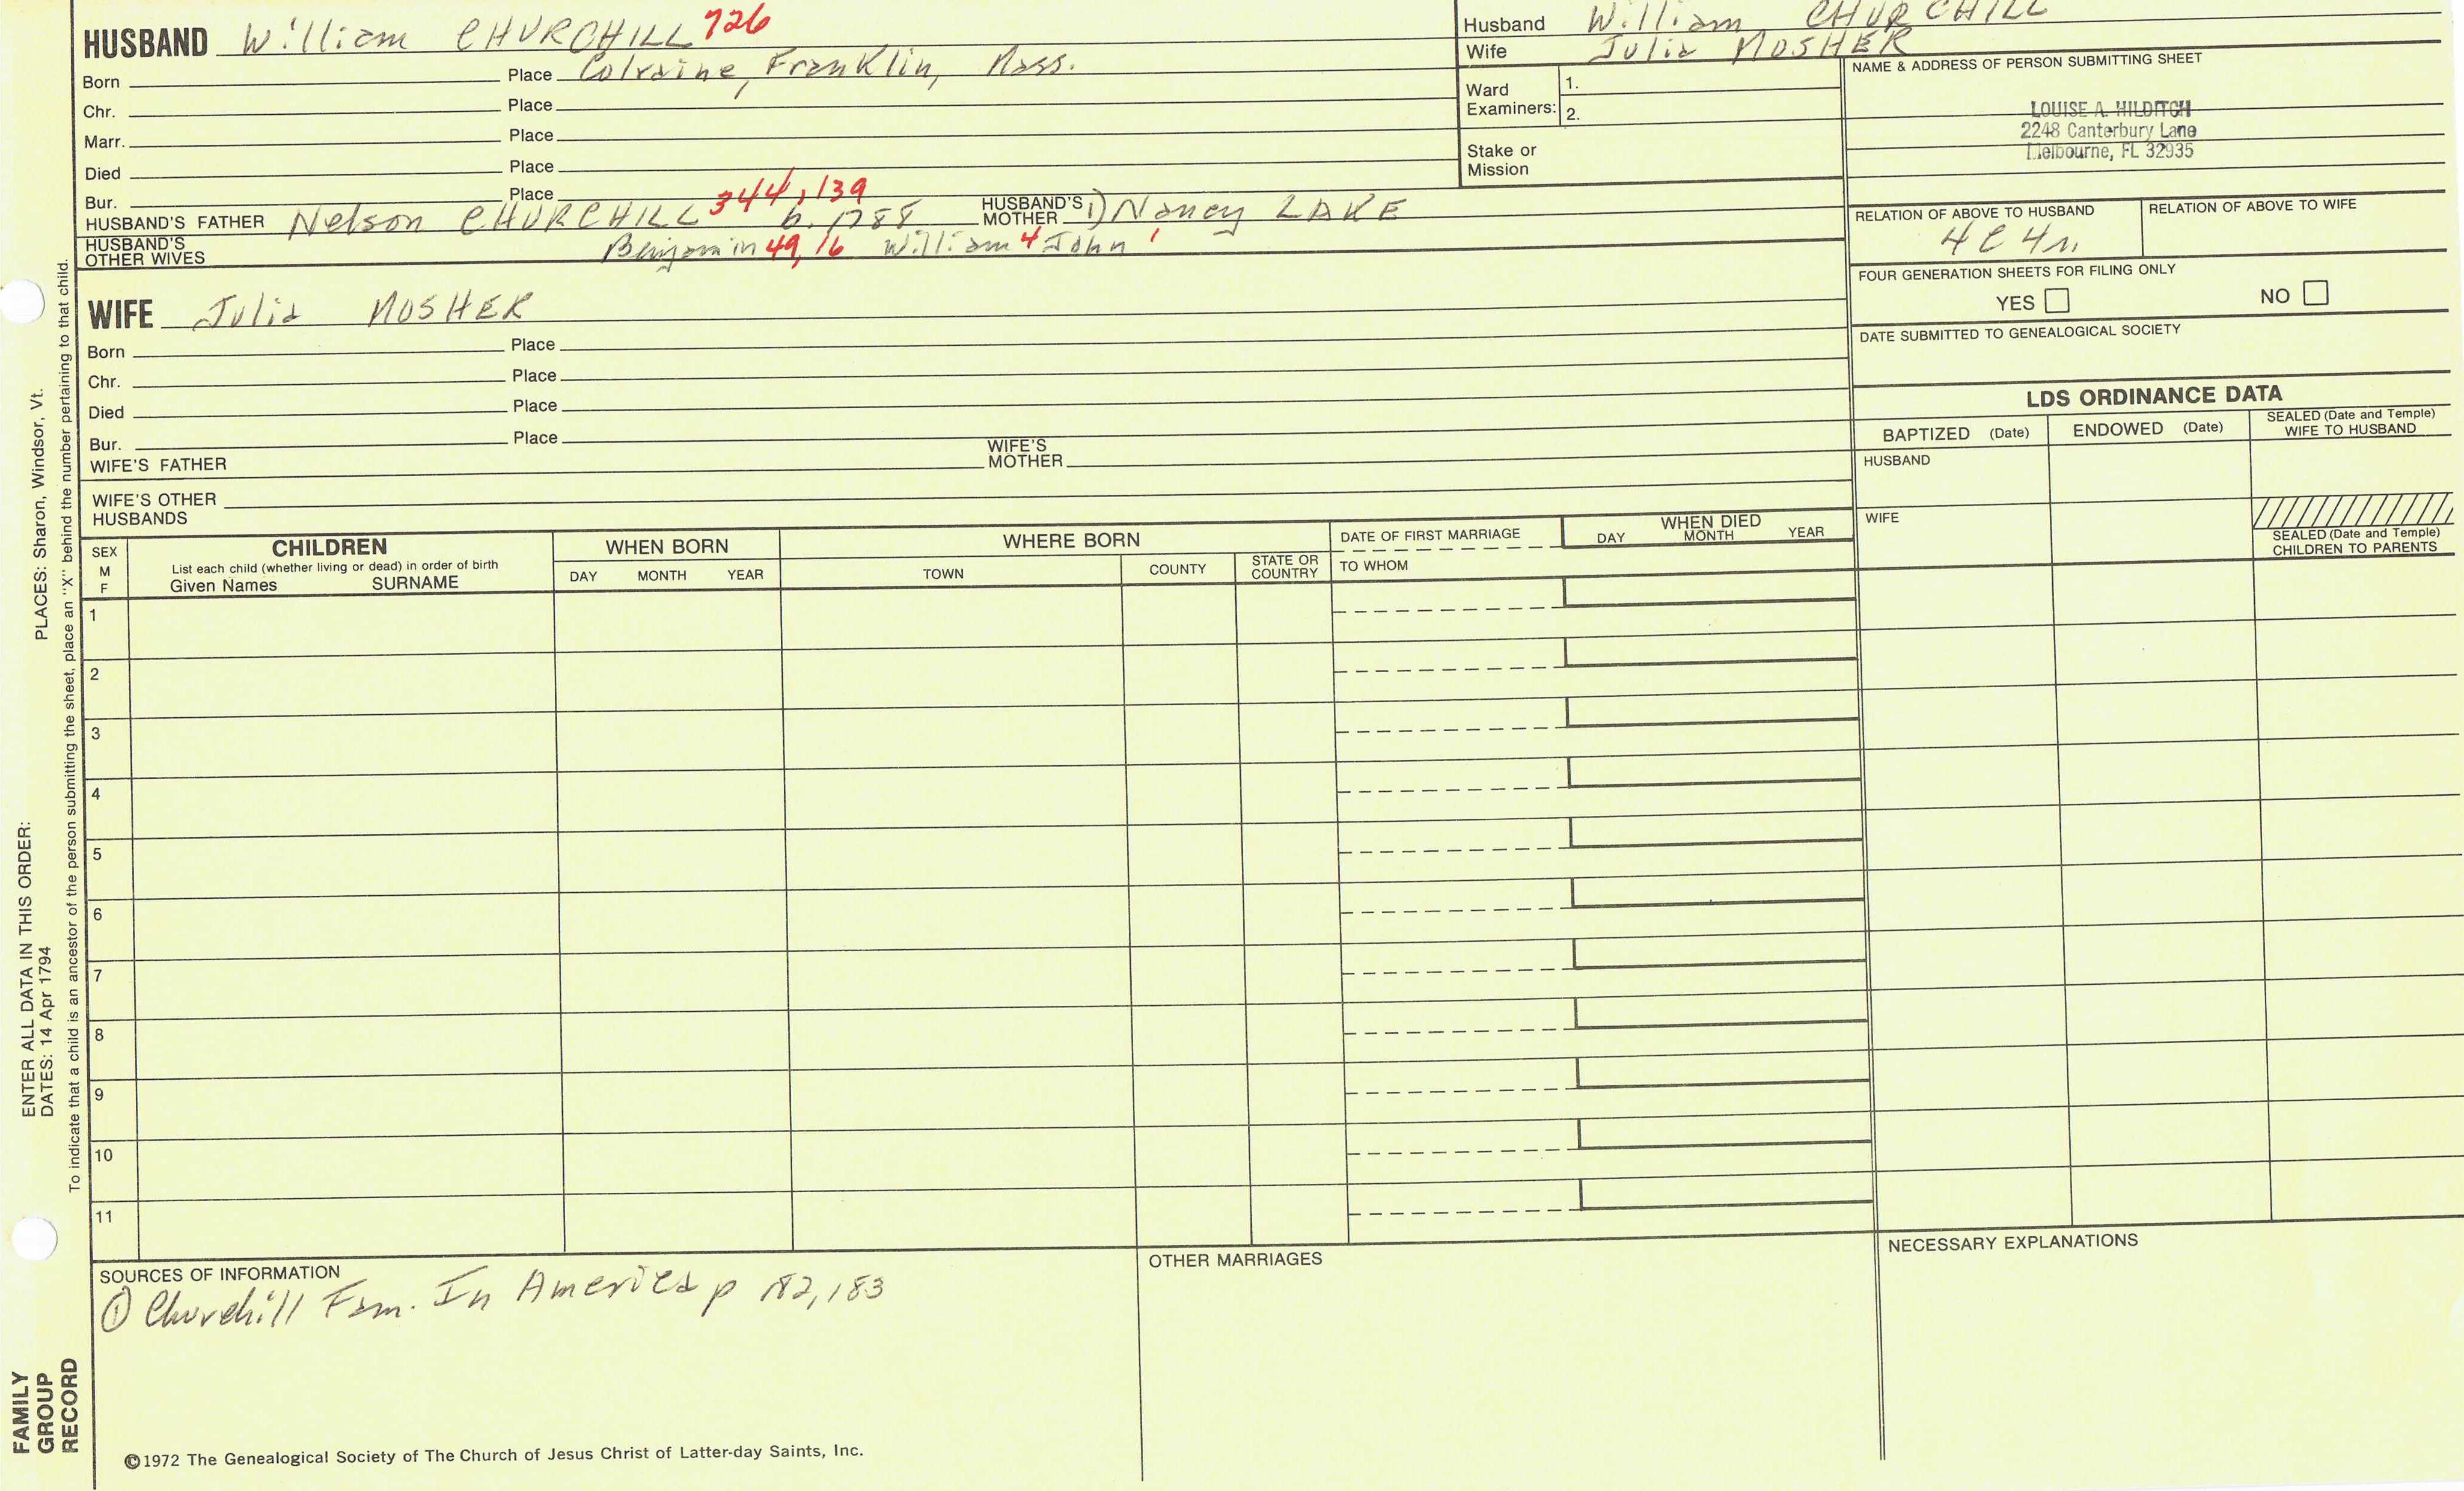 HUSBAND William CHURCHILL 726
Born Place Colraine, Franklin, Mass.
Chr. Place
Marr. Place
Died Place
Bur. Place
HUSBAND'S FATHER Nelson CHURCHILL 344, 139 b. 1788 HUSBAND'S MOTHER 1) Nancy LAKE
HUSBAND'S OTHER WIVES Benjamin 49, 16 William 4 John 1
Husband William CHURCHILL
Wife Julia MOSHER
Ward Examiners: 1.
2.
Stake or Mission
NAME & ADDRESS OF PERSON SUBMITTING SHEET
LOUISE A. HILDITCH
2248 Canterbury Lane
Melbourne, FL 32935
RELATION OF ABOVE TO HUSBAND RELATION OF ABOVE TO WIFE
4C4r.
FOUR GENERATION SHEETS FOR FILING ONLY
YES NO
DATE SUBMITTED TO GENEALOGICAL SOCIETY
WIFE Julia MOSHER
Born Place
Chr. Place
Died Place
Bur. Place
WIFE'S FATHER WIFE'S MOTHER
WIFE'S OTHER HUSBANDS
LDS ORDINANCE DATA
BAPTIZED (Date) ENDOWED (Date) SEALED (Date and Temple) WIFE TO HUSBAND
HUSBAND
WIFE
SEALED (Date and Temple) CHILDREN TO PARENTS
SEX M F
CHILDREN
List each child (whether living or dead) in order of birth
Given Names SURNAME
WHEN BORN
DAY MONTH YEAR
WHERE BORN
TOWN COUNTY STATE OR COUNTRY
DATE OF FIRST MARRIAGE
TO WHOM
WHEN DIED
DAY MONTH YEAR
1
2
3
4
5
6
7
8
9
10
11
SOURCES OF INFORMATION
① Churchill Fam. In America p 182, 183
OTHER MARRIAGES
NECESSARY EXPLANATIONS
©1972 The Genealogical Society of The Church of Jesus Christ of Latter-day Saints, Inc.
FAMILY GROUP RECORD
ENTER ALL DATA IN THIS ORDER:
DATES: 14 Apr 1794
PLACES: Sharon, Windsor, Vt.
To indicate that a child is an ancestor of the person submitting the sheet, place an "X" behind the number pertaining to that child.